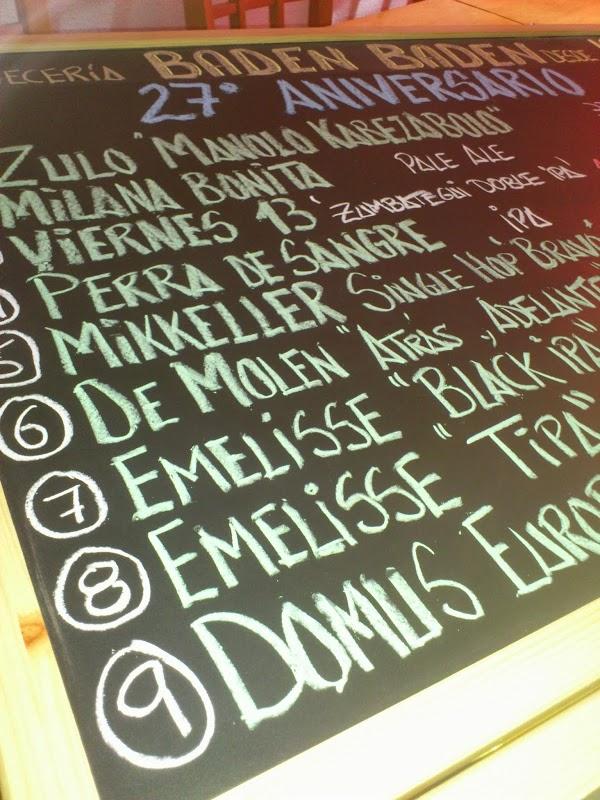 ECERÍA BADEN BADEN DESDE
27° ANIVERSARIO
ZULO "MANOLO KABEZABOLO"
MILANA BONITA PALE ALE
VIERNES 13' ZUMBATEGUI DOBLE IPA'
PERRA DE SANGRE IPA
5 MIKKELLER SINGLE HOP' BRAVO
6 DE MOLEN "ATRÁS, ADELANTE
7 EMELISSE "BLACK IPA"
8 EMELISSE "TIPA"
9 DOMUS EUROP